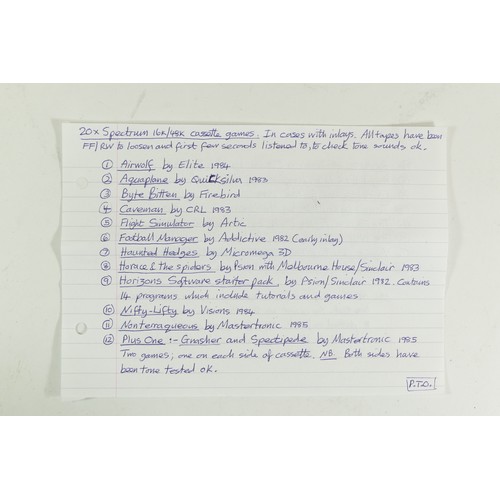 20x Spectrum 16K/48K cassette games. In cases with inlays. All tapes have been
FF/RW to loosen and first few seconds listened to, to check tone sounds ok.
① Airwolf by Elite 1984
② Aquaplane by Quicksilva 1983
③ Byte Bitten by Firebird
④ Caveman by CRL 1983
⑤ Flight Simulator by Artic
⑥ Football Manager by Addictive 1982 (early inlay)
⑦ Haunted Hedges by Micromega 3D
⑧ Horace & the spiders by Psion with Melbourne House/Sinclair 1983
⑨ Horizons Software starter pack by Psion/Sinclair 1982. Contains
14 programs which include tutorials and games
⑩ Nifty-Lifty by Visions 1984
⑪ Nonterraqueous by Mastertronic 1985
⑫ Plus One :- Gnasher and Spectipede by Mastertronic 1985
Two games; one on each side of cassette. NB. Both sides have
been tone tested ok.
P.T.O.